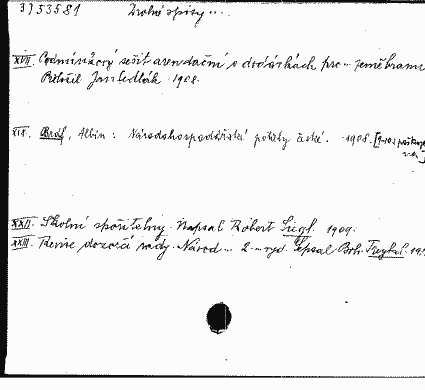 3) 53581 Zvolní spisy ...
XVII. Podmínkový sešit arendační o dodávkách pro ... zeměbranu
Přeložil Jan Sedlák 1908.
XIX. Bráf, Albín: Národohospodářské potřeby české. 1908.
XXII. Školní spořitelny. Napsal Robert Liegl. 1909.
XXIII. Revise dozorčí rady. Národ ... 2. ... vyd. Sepsal Boh.